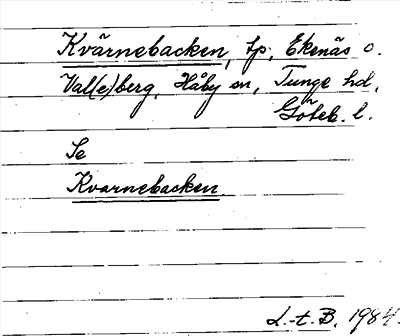 Kvärnebacken, tp, Ekenäs o.
Val(e)berg, Håby sn, Tunge hd,
Göteb. l.
Se
Kvarnebacken
L.-t. B. 1984.